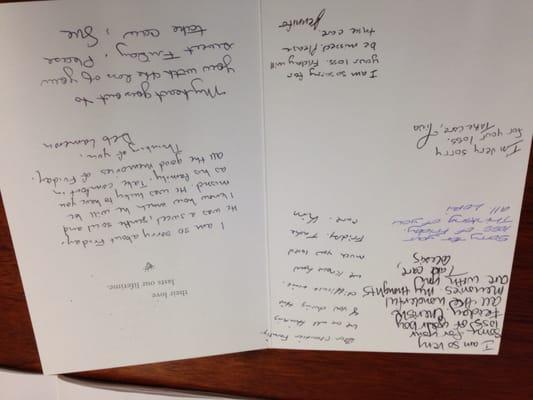 I am so very
sorry for your
loss of your boy
Friday. Cherish
all the wonderful
memories. My thoughts
are with you.
Take care,
Alexis
Family,
We are all thinking
of you during this
difficult time.
We know how
much you loved
Friday. Take
care. Kim
Sorry for your
loss of Friday.
Thinking of you
all
I'm very sorry
for your loss.
Take care, Tina
I am so sorry for
your loss. Friday will
be missed. Please
take care
Jennifer
their love
lasts our lifetime.
I am so sorry about Friday.
He was a sweet, gentle soul and
I know how much he will be
missed. He was lucky to have you
as his family. Take comfort in
all the good memories of Friday.
Thinking of you,
Deb Cameron
My heart goes out to
you with the loss of your
sweet Friday. Please
take care, Sue